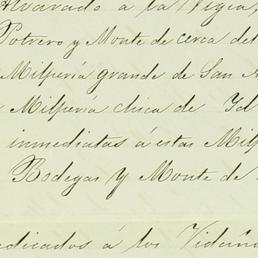 Alvarado á la Vigia,
Potrero y Monte de cerca del
Milperia grande de San
Milperia chica de
inmediatas á estas Milp
Bodegas y Monte de
edicados á los